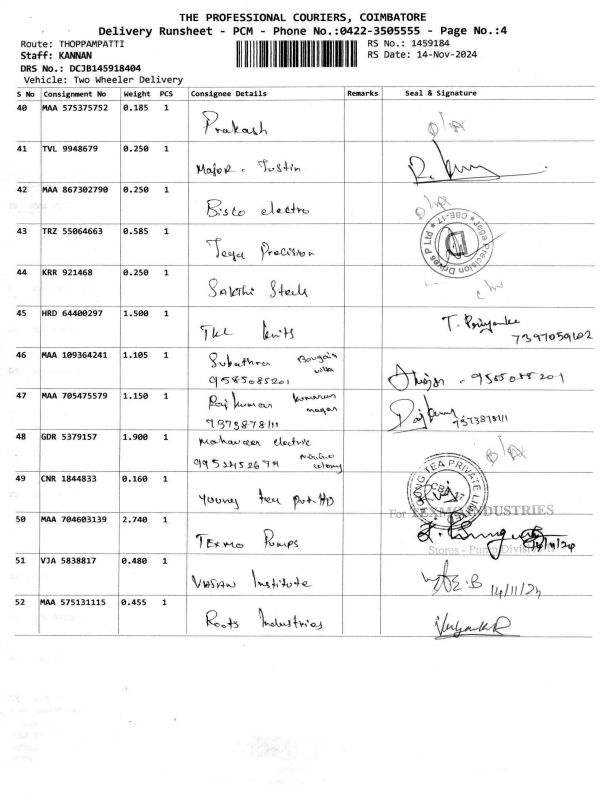 THE PROFESSIONAL COURIERS, COIMBATORE
Delivery Runsheet - PCM - Phone No.:0422-3505555 - Page No.:4
Route: THOPPAMPATTI
RS No.: 1459184
Staff: KANNAN
RS Date: 14-Nov-2024
DRS No.: DCJB145918404
Vehicle: Two Wheeler Delivery
S No Consignment No Weight PCS Consignee Details Remarks Seal & Signature
40 MAA 575375752 0.185 1 Prakash D/A
41 TVL 9948679 0.250 1 Major. Justin
42 MAA 867302790 0.250 1 Bisco electro
43 TRZ 55064663 0.585 1 Tega Precision
Precision Drives P Ltd CBE-17
44 KRR 921468 0.250 1 SAKthi Steels
45 HRD 64400297 1.500 1 TKL knits T. Priyanka
7397059102
46 MAA 109364241 1.105 1 Subathra Bougain villa
9585085201
47 MAA 705475579 1.150 1 Rajkumar kumaran nagar
7373878111 7373878111
48 GDR 5379157 1.900 1 mahaveer electric
9952452679 colony D/A
49 CNR 1844833 0.160 1 young tea pvt. ltd
TEA PRIVATE LIMITED
For TEXMO INDUSTRIES
50 MAA 704603139 2.740 1 TEXMO PUMPS
Stores - Pump Division 14/11/24
51 VJA 5838817 0.480 1 VASAN Institute 14/11/24
52 MAA 575131115 0.455 1 Roots Industries